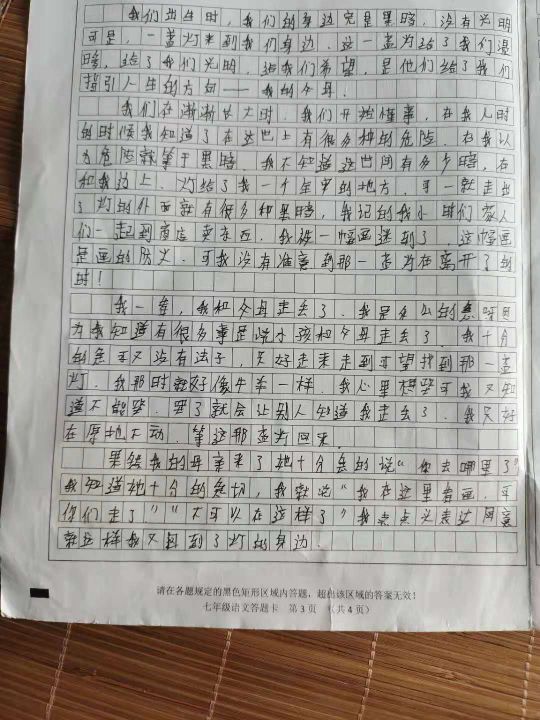 我们出生时，我们的身边完是黑暗，没有光明
可是，一盏灯来到我们身边．这一盏为给了我们温
暗，给了我们光明，给我们希望，是他们给了我们
指引人生的方向——我的父母．
我们在渐渐长大时．我们开始懂事，在我人时
的时候我知道了在这世上有很多种的危险．在我以
为危险就等于黑暗．我不知道这世间有多少暗，在
和我边上．灯给了我一个牢的地方．可一就走出
了灯的外面就有很多种黑暗，我记的我小时们家人
们一起到首店卖东西．我被一幅画迷到了．这幅画
是画的防火．可我没有准意到那一盏为在离开了的
时！
我一看，我和父母走丢了．我是多么的急呀因
为我知道有很多事是说小孩和父母走丢了．我十分
的急又没有法子，只好走来走到可望找到那一盏
灯．我那时就好像牛羊一样．我心里想哭可我又知
道不能哭．哭了就会让别人知道我走丢了．我只好
在原地不动．等这那盏灯回来．
果然我的母亲来了她十分急的说“你去哪里了”
我知道她十分的急切，我就说“我在这里看画．可
你们走了”“不可以在这样了”我点点头表达同意
就这样我又回到了灯的身边．
请在各题规定的黑色矩形区域内答题，超出该区域的答案无效！
七年级语文答题卡 第3页 （共4页）